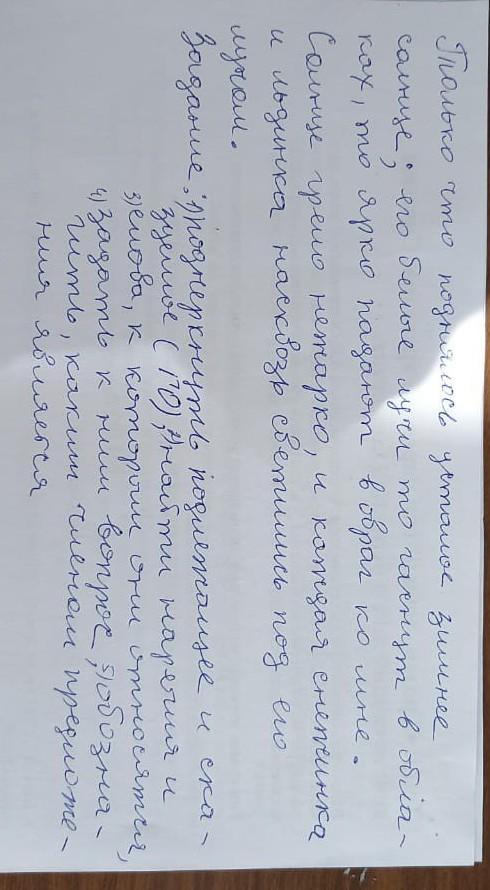 Только что поднялось усталое зимнее
солнце; его белые лучи то гаснут в обла-
ках, то ярко падают в овраг ко мне.
Солнце грело нежарко, и каждая снежинка
и льдинка насквозь светились под его
лучом.
Задание: 1) подчеркнуть подлежащее и ска-
зуемое (ГО); 2) найти наречия и
3) слова, к которым они относятся,
4) задать к ним вопрос, 5) обозна-
чить, каким членом предложе-
ния является